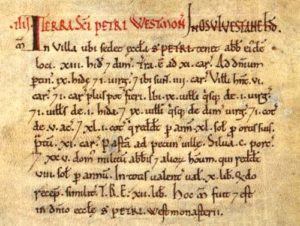 TERRA SCI PETRI WESTMON. IN OSVLVESTANE HD.
In Villa ubi sedet æccła S PETRI. tenet abb ei de
loci. XIII. hid 7 dim. Tra. e ad. XI. car. Ad dnium
ptin. IX. hidæ 7 I. uirg. 7 ibi sunt. IIII. car. Villi hnt. VI.
car. 7 I. car plus pot fieri. Ibi. IX. uilli qsq de. I. uirg.
7 I. uills de. I. hida. 7 IX. uilli qsq de dim uirg. 7 I. cot
de. V. ac. 7 XL. I. cot q redd p ann. XL. sol p ortis suis.
Ptu. XI. car. Pasta ad pecun uillæ. Silua. C. porc.
7 XXV. dom militu abbis 7 alioru houm. qui redd
VIII. sol p annu. In totis ualent ual. X. lib. Qdo
recep similit. T.R.E. XII. lib. Hoc M fuit 7 est
in dnio æccłe S PETRI. Westmonasterii.